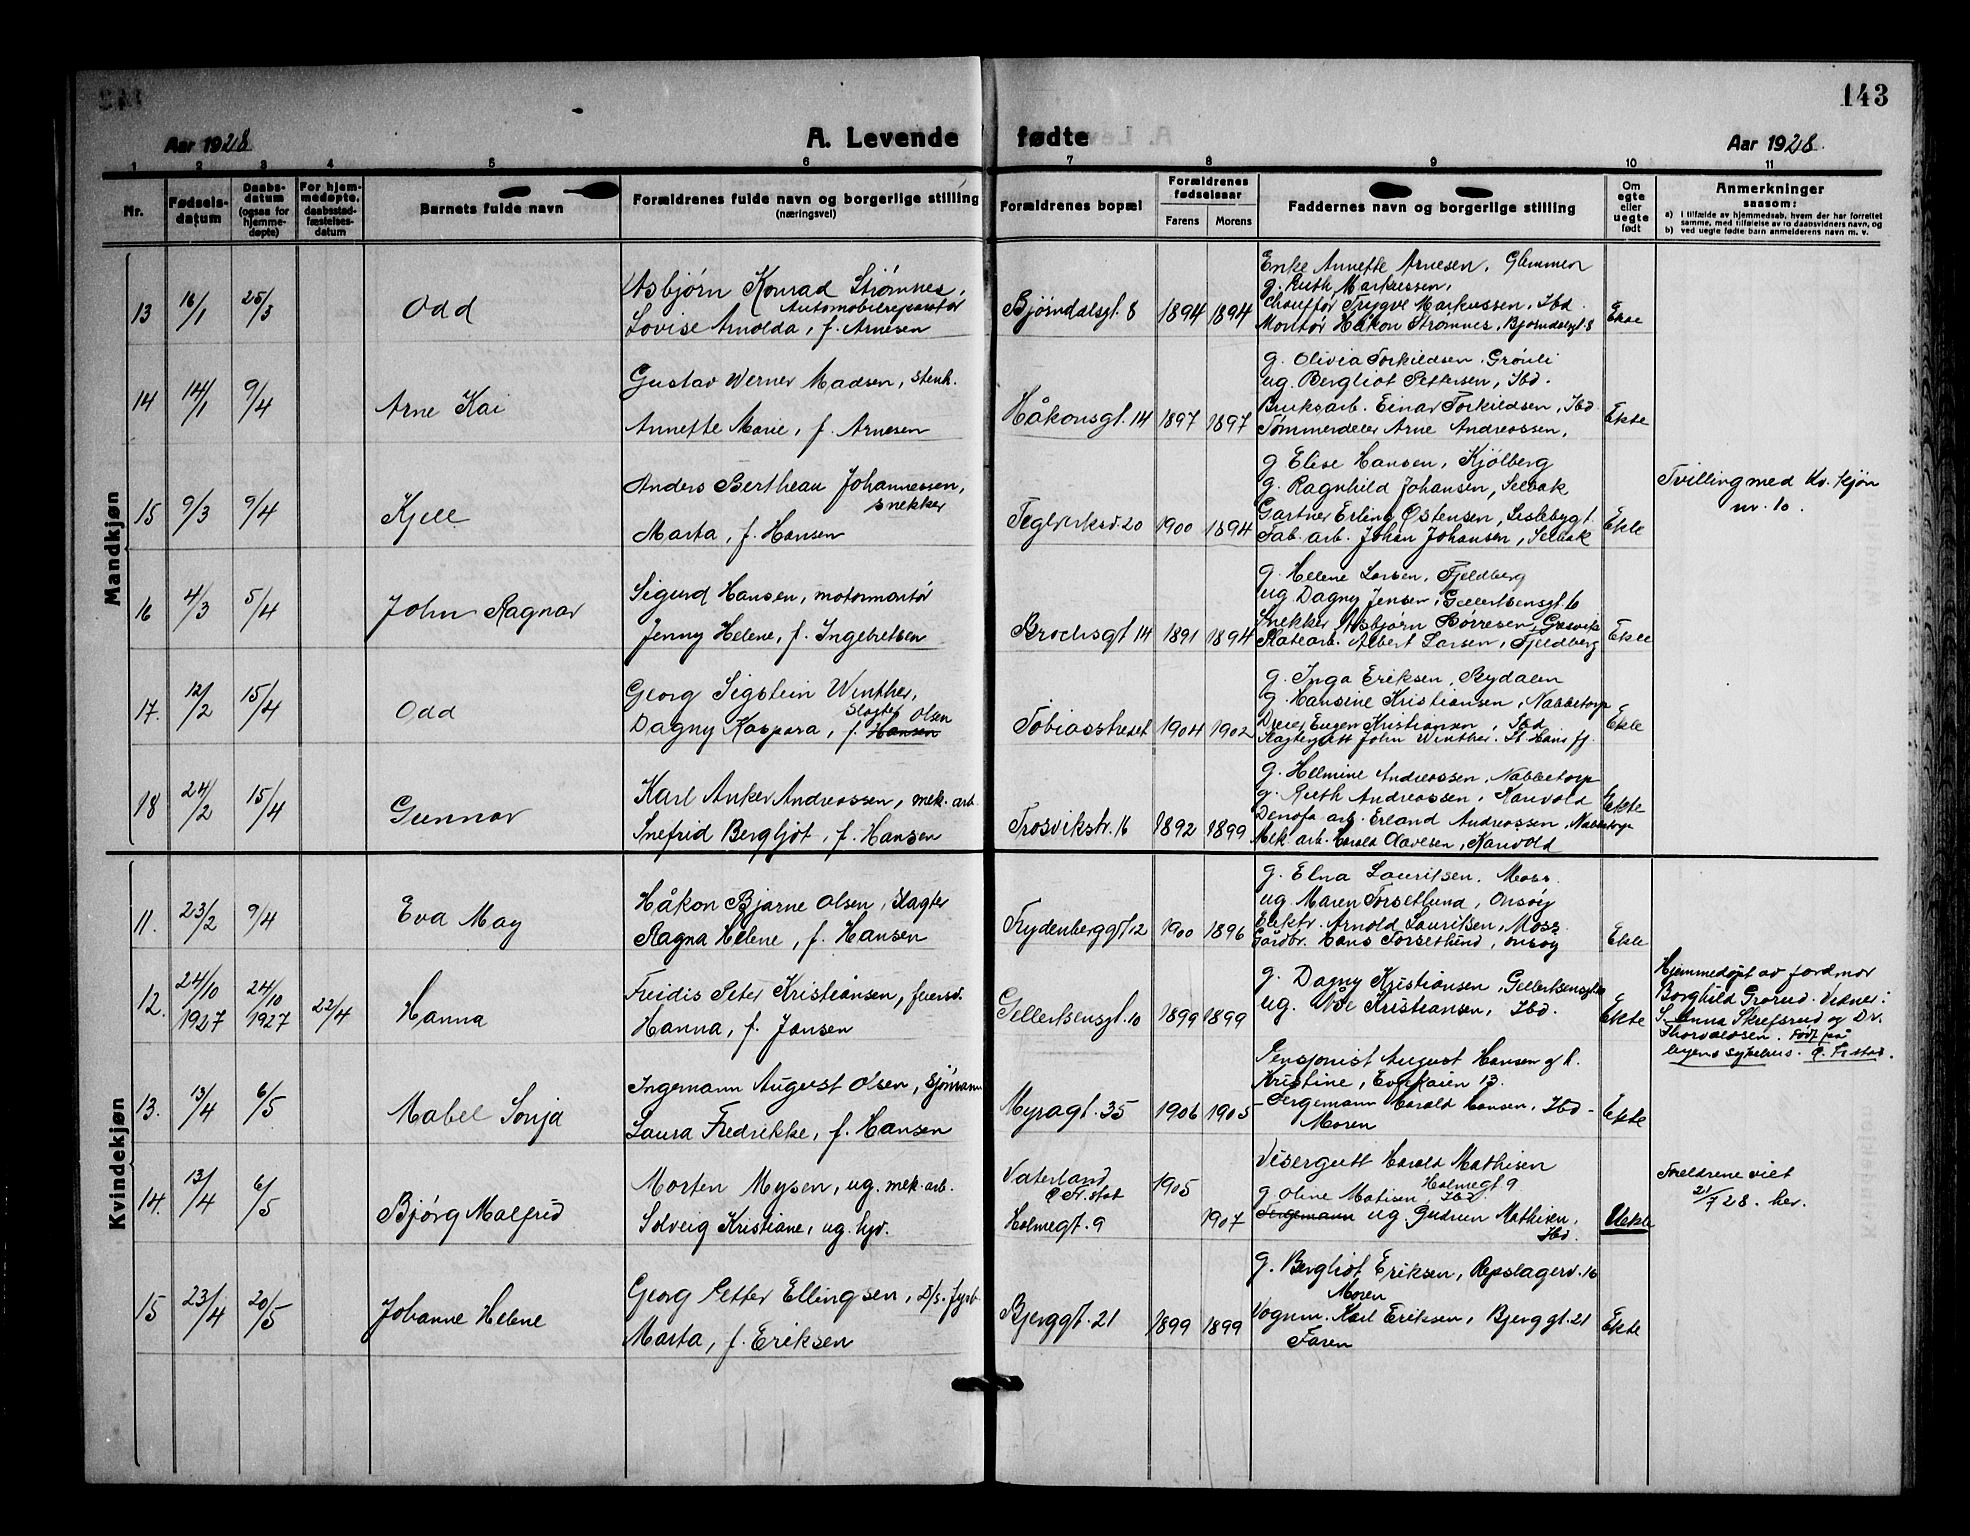 143
Aar 1928
A. Levende fødte
Aar 1928.
1 2 3 4 5 6 7 8 9 10 11
Nr.
Fødsels-
datum
Daabs-
datum
(ogsaa for
hjemme-
døpte)
For hjem-
medøpte,
daabsstad-
fæstelses-
datum
Barnets fulde navn
Forældrenes fulde navn og borgerlige stilling
(næringsvei)
Forældrenes bopæl
Forældrenes
fødselsaar
Farens Morens
Faddernes navn og borgerlige stilling
Om
egte
eller
uegte
født
Anmerkninger
saasom:
a) I tilfælde av hjemmedaab, hvem der har forrettet
samme, med tilføielse av to daabsvidners navn, og
b) ved uegte fødte barn anmelderens navn m. v.
Mandkjøn
13 16/1 25/3 Odd
Asbjørn Konrad Strømnes,
Automobilreparatør
Lovise Arnolda, f. Arnesen
Bjørndalsgt. 8 1894 1894
Enke Annette Arnesen, Glemmen
g. Ruth Markussen,
Chauffør Trygve Markussen, Ibd.
Montør Håkon Strømnes, Bjørndalsgt. 8
Ekte
14 14/1 9/4 Arne Kai
Gustav Werner Madsen, stenh.
Annette Marie, f. Arnesen
Håkonsgt. 14 1897 1897
g. Olivia Torkildsen, Grønli
ug. Bergliot Pettersen, Ibd.
Bruksarb. Einar Torkildsen, Ibd.
Tømmerdeler Arne Andreassen,
Ekte
15 9/3 9/4 Kjell
Anders Bertheau Johannessen,
snekker
Marta, f. Hansen
Teglverksv. 20 1900 1894
g. Elise Hansen, Kjølberg
g. Ragnhild Johansen, Selbak
Gartner Erling Østensen, Lislebygt.
Fab. arb. Johan Johansen, Selbak
Ekte
Tvilling med Kv. kjøn
nr. 10.
16 4/3 5/4 John Ragnar
Sigurd Hansen, motormontør
Jenny Helene, f. Ingebretsen
Brochsgt 14 1891 1894
g. Helene Larsen, Fjeldberg
ug. Dagny Jensen, Gellertsensgt. 6
Snekker Asbjørn Børresen, Gresvik
Platearb. Albert Larsen, Fjeldberg
Ekte
17. 12/2 15/4 Odd
Georg Sigstein Winther,
Slagter
Dagny Kaspara, f. Hansen Olsen
Tobiasstredet 1904 1902
g. Inga Eriksen, Rydalen
g. Hansine Kristiansen, Nabbetorp
Dreier Eugen Kristiansen, Ibd.
Slagtergutt John Winther, St. Hans fj.
Ekte
18 24/2 15/4 Gunnar
Karl Anker Andreassen, mek. arb.
Snefrid Bergljot, f. Hansen
Trosvikstr. 16 1892 1899
g. Helmine Andreassen, Nabbetorp
g. Ruth Andreassen, Karivold
Denofa arb. Erland Andreassen, Nabbetorp
Mek. arb. Harald Olavesen, Karivold
Ekte
Kvindekjøn
11. 23/2 9/4 Eva May
Håkon Bjarne Olsen, Slagter
Ragna Helene, f. Hansen
Frydenberggt 12 1900 1896
g. Elna Lauritsen, Moss.
ug. Maren Torsetlund, Onsøy
Elektr. Arnold Lauritsen, Moss.
Gårdbr. Hans Torsetlund, Onsøy
Ekte
12. 24/10 1927 24/10 1927 22/4 Hanna
Freidis Peter Kristiansen, feiersv.
Hanna, f. Jansen
Gellertsensgt. 10 1899 1899
g. Dagny Kristiansen, Gellertsensgt. 10
ug. Åse Kristiansen, Ibd.
Ekte
Hjemmedøpt av jordmor
Borghild Grorud. Vidner:
S. Anna Skrefsrud og Dr.
Thorvaldsen. Født på
byens sykehus. Ø. Fr.stad.
13. 13/4 6/5 Mabel Sonja
Ingemann August Olsen, sjømann
Laura Fredrikke, f. Hansen
Myragt. 35 1906 1905
Pensjonist August Hansen og h.
Kristine, Evjekaien 13.
Fergemann Harald Hansen, Ibd.
Moren
Ekte
14. 13/4 6/5 Bjørg Malfrid
Morten Mysen, ug. mek. arb.
Solveig Kristiane, ug. hjv.
Vaterland
Ø. Fr. stad 1905
Holmegt. 9 1907
Visergutt Harald Mathisen
Holmegt 9
g. Oline Matisen, Ibd.
Fergemann ug. Gudrun Mathisen,
Ibd.
Uekte
Foreldrene viet
21/7 28. her.
15 23/4 20/5 Johanne Helene
Georg Petter Ellingsen, D/s. fyrb.
Marta, f. Eriksen
Bjerggt. 21 1899 1899
g. Bergliot Eriksen, Repslagerv. 16
Moren
Vognm. Karl Eriksen, Bjerggt. 21
Faren
Ekte